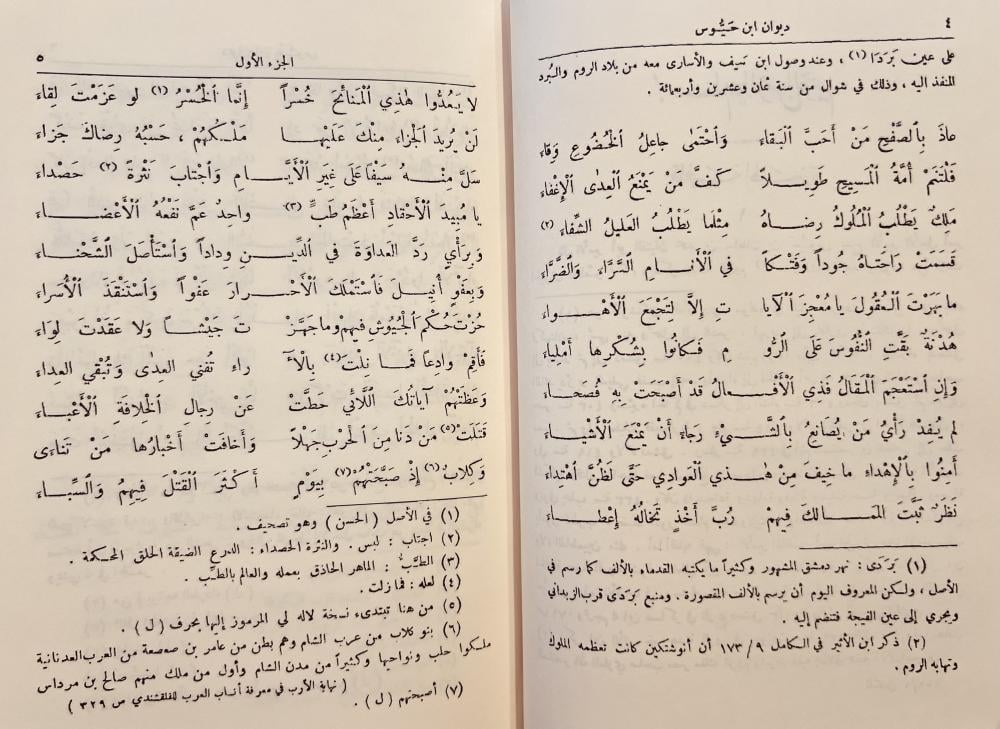 ٤
ديوان ابن حَيُّوس
على عين بَرَدَا (١) ، وعند وصول ابن سيف والأسارى معه من بلاد الروم والبُرد
المنفذ اليه ، وذلك في شوال من سنة ثمان وعشرين وأربعمائة .
عاذَ بِالصَّفْحِ مَنْ أَحَبَّ الْبَقاءَ وَاحْتَمٰى جاعِلُ الْخُضُوعِ وِقاءَ
فَلْتَنَمْ أُمَّةُ الْمَسِيحِ طَوِيلاً كَفَّ مَنْ يَمْنَعُ الْعِدٰى الإِغْفاءَ
مَلِكٌ يَطْلُبُ الْمُلُوكُ رِضاهُ مِثْلَما يَطْلُبُ العَلِيلُ الشِّفاءَ (٢)
قَسَمَتْ راحَتاهُ جُوداً وَفَتْكاً في الْأَنامِ السَّرَّاءَ وَالضَّرَّاءَ
ما بَهَرْتَ الْعُقُولَ يا مُعْجِزَ الْآيا تِ إِلاَّ لِتَجْمَعَ الْأَهْواءَ
هُدْنَةٌ بَقَّتِ النُّفُوسَ عَلَى الرُّو مِ فَكانُوا بِشُكْرِها أَمْلِياءَ
وَإِنِ اسْتَعْجَمَ الْمَقالُ فَذِي الْأَفْعالُ قَدْ أَصْبَحَتْ بِهِ فُصَحاءَ
لم يُفِدْ رَأْيُ مَنْ يُصانِعُ بِالشَّيْءِ رَجاءَ أَنْ يَمْنَعَ الْأَشْياءَ
أَمِنُوا بِالْإِهْداءِ ما خِيفَ مِنْ هٰذي الْعَوادِي حَتَّى لَظُنَّ اهْتِداءَ
نَظَرٌ ثَبَّتَ الْمَمالِكَ فِيهِمْ رُبَّ أَخْذٍ تَخالُهُ إِعْطاءَ
(١) بَرَدَى : نهر دمشق المشهور وكثيراً ما يكتبه القدماء بالألف كما رسم في
الأصل ، ولكن المعروف اليوم أن يرسم بالألف المقصورة . ومنبع بَرَدَى قرب الزبداني
ويجري إلى عين الفيجة فتنضم إليه .
(٢) ذكر ابن الأثير في الكامل ٩ / ١٧٣ أن أنوشتكين كانت تعظمه الملوك
وتهابه الروم .
الجزء الأول
٥
لا يَعُدُّوا هٰذِي الْمَنائِحَ خُسْراً إِنَّما الْخُسْرُ (١) لو عَزَمْتَ لِقاءَ
لَنْ يُرِيدَ الْجَزاءَ مِنْكَ عَلَيْها مَلْكُهُمْ ، حَسْبُهُ رِضاكَ جَزاءَ
سَلَّ مِنْهُ سَيْفاً عَلَى غَيْرِ الْأَيَّامِ وَاجْتابَ نَثْرَةً (٢) حَصْداءَ
يا مُبِيدَ الْأَحْقادِ أَعْظَمُ طَبٍّ (٣) واحِدٌ عَمَّ نَفْعُهُ الْأَعْضاءَ
وَبِرَأْيٍ رَدَّ العَداوَةَ في الدِّينِ وِداداً وَاسْتَأْصَلَ الشَّحْناءَ
وَبِعَفْوٍ أُنِيلَ فَاسْتَمْلَكَ الْأَحْرارَ عَفْواً وَاسْتَنْقَذَ الْأُسَراءَ
حُزْتَ حُكْمَ الْجُيُوشِ فِيهِمْ وما جَهَّزْ تَ جَيْشاً وَلا عَقَدْتَ لِواءَ
فَأَقِمْ وادِعاً فَما نِلْتَ (٤) بِالْآ راءِ تُفْنِي الْعِدٰى وَتُبْقِي العِداءَ
وَعَظَتْهُمْ آياتُكَ اللَّائِي حَطَّتْ عَنْ رِجالِ الْخِلافَةِ الْأَعْباءَ
قَتَلَتْ (٥) مَنْ دَنا مِنَ الْحَرْبِ جَهْلاً وَأَخافَتْ أَخْبارُها مَنْ تَناءَى
وَكِلابٌ (٦) إِذْ صَبَّحَتْهُمْ (٧) بِيَوْمٍ أَكْثَرَ الْقَتْلَ فِيهِمُ وَالسِّباءَ
(١) في الأصل ( الحسن ) وهو تصحيف .
(٢) اجتاب : لبس . والنثرة الحصداء : الدرع الضيقة الحلق المحكمة .
(٣) الطَّبُّ : الماهر الحاذق بعمله والعالم بالطِّب .
(٤) لعله : فما زلت .
(٥) من هنا تبتدىء نسخة لاله لي المرموز إليها بحرف ( ل ) .
(٦) بنو كلاب من عرب الشام وهم بطن من عامر بن صعصعة من العرب العدنانية
ملكوا حلب ونواحيها وكثيراً من مدن الشام وأول من ملك منهم صالح بن مرداس
( نهاية الأرب في معرفة أنساب العرب للقلقشندي ص ٣٢٩ )
(٧) أصبحتهم ( ل ) .